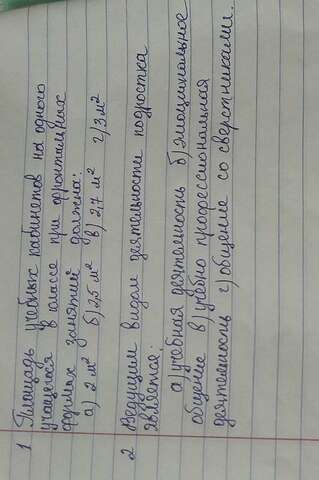 1 Площадь учебных кабинетов на одного
учащегося в классе при фронтальных
формах занятий должна:
а) 2 м² б) 2,5 м² в) 2,7 м² г) 3 м²
2 Ведущим видом деятельности подростка
является:
а) учебная деятельность б) эмоциональное
общение в) учебно профессиональная
деятельность г) общение со сверстниками.